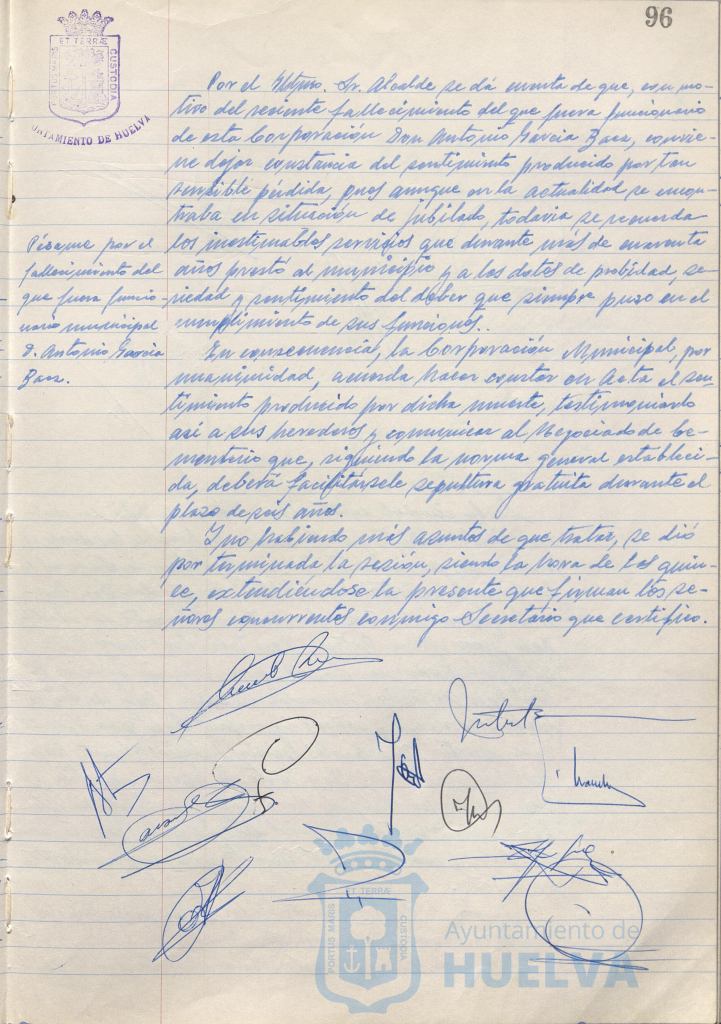 96
ET TERRÆ
PORTUS MARIS
CUSTODIA
AYUNTAMIENTO DE HUELVA
Por el Iltmo. Sr. Alcalde se dá cuenta de que, con mo-
tivo del reciente fallecimiento del que fuera funcionario
de esta Corporación Don Antonio Garcia Baez, convie-
ne dejar constancia del sentimiento producido por tan
sensible pérdida, pues aunque en la actualidad se encon-
traba en situación de jubilado, todavia se recuerda
los inestimables servicios que durante más de cuarenta
años prestó al municipio y a las dotes de probidad, se-
riedad y sentimiento del deber que siempre puso en el
cumplimiento de sus funciones..
Pésame por el
fallecimiento del
que fuera funcio-
nario municipal
D. Antonio Garcia
Baez.
En consecuencia, la Corporación Municipal, por
unanimidad, acuerda hacer constar en Acta el sen-
timiento producido por dicha muerte, testimoniarlo
así a sus herederos y comunicar al Negociado de Ce-
menterio que, siguiendo la norma general estableci-
da, deberá facilitársele sepultura gratuita durante el
plazo de seis años.
Y no habiendo más asuntos de que tratar, se dió
por terminada la sesión, siendo la hora de las quin-
ce, extendiéndose la presente que firman los se-
ñores concurrentes conmigo Secretario que certifico.
ET TERRÆ
PORTUS MARIS
CUSTODIA
Ayuntamiento de
HUELVA